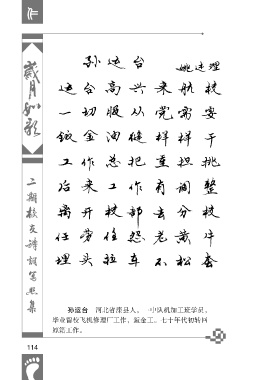 作
岁月如歌
二期校友诗词写照集
孙运台
姚述理
运台高兴来航校
一切服从党需要
钣金油缝样样干
工作总把重担挑
后来工作有调整
离开校部去分校
任劳任怨老黄牛
埋头拉车不松套
孙运台 河北省 县人。一中队机加工班学员。
毕业留校飞机修理厂工作，钣金工。七十年代初转回
原籍工作。
114